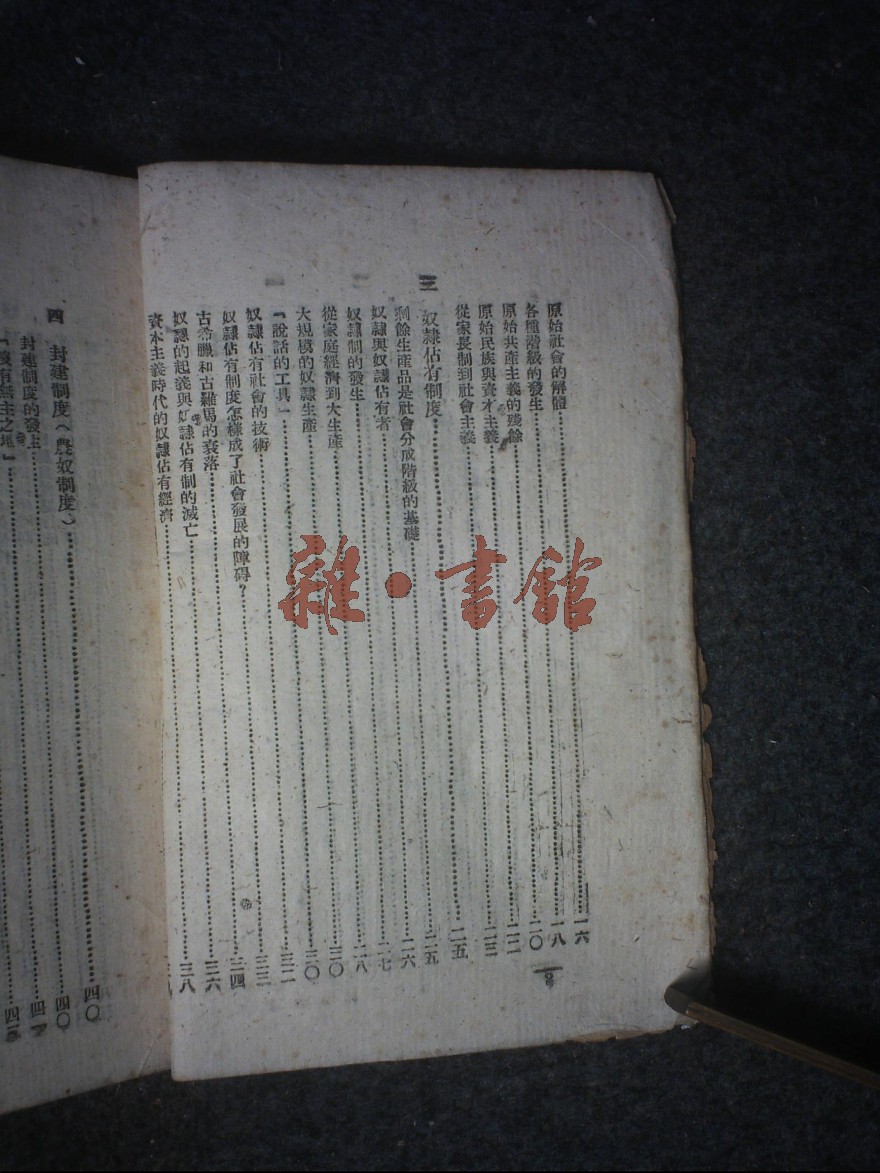 原始社會的解體……一六
各種階級的發生……一八
原始共產主義的殘餘……二〇
原始民族與資本主義……二二
從家長制到社會主義……二三
三 奴隸佔有制度……二五
剩餘生產品是社會分成階級的基礎……二五
奴隸與奴隸佔有者……二六
奴隸制的發生……二七
從家庭經濟到大生產……二八
大規模的奴隸生產……三〇
「說話的工具」……三〇
奴隸佔有社會的技術……三二
奴隸佔有制度怎樣成了社會發展的障碍？……三三
古希臘和古羅馬的衰落……三四
奴隸的起義與奴隸佔有制的滅亡……三六
資本主義時代的奴隸佔有經濟……三八
四 封建制度（農奴制度）……四〇
封建制度的發生……四〇
「沒有無主之地」
雜·書館